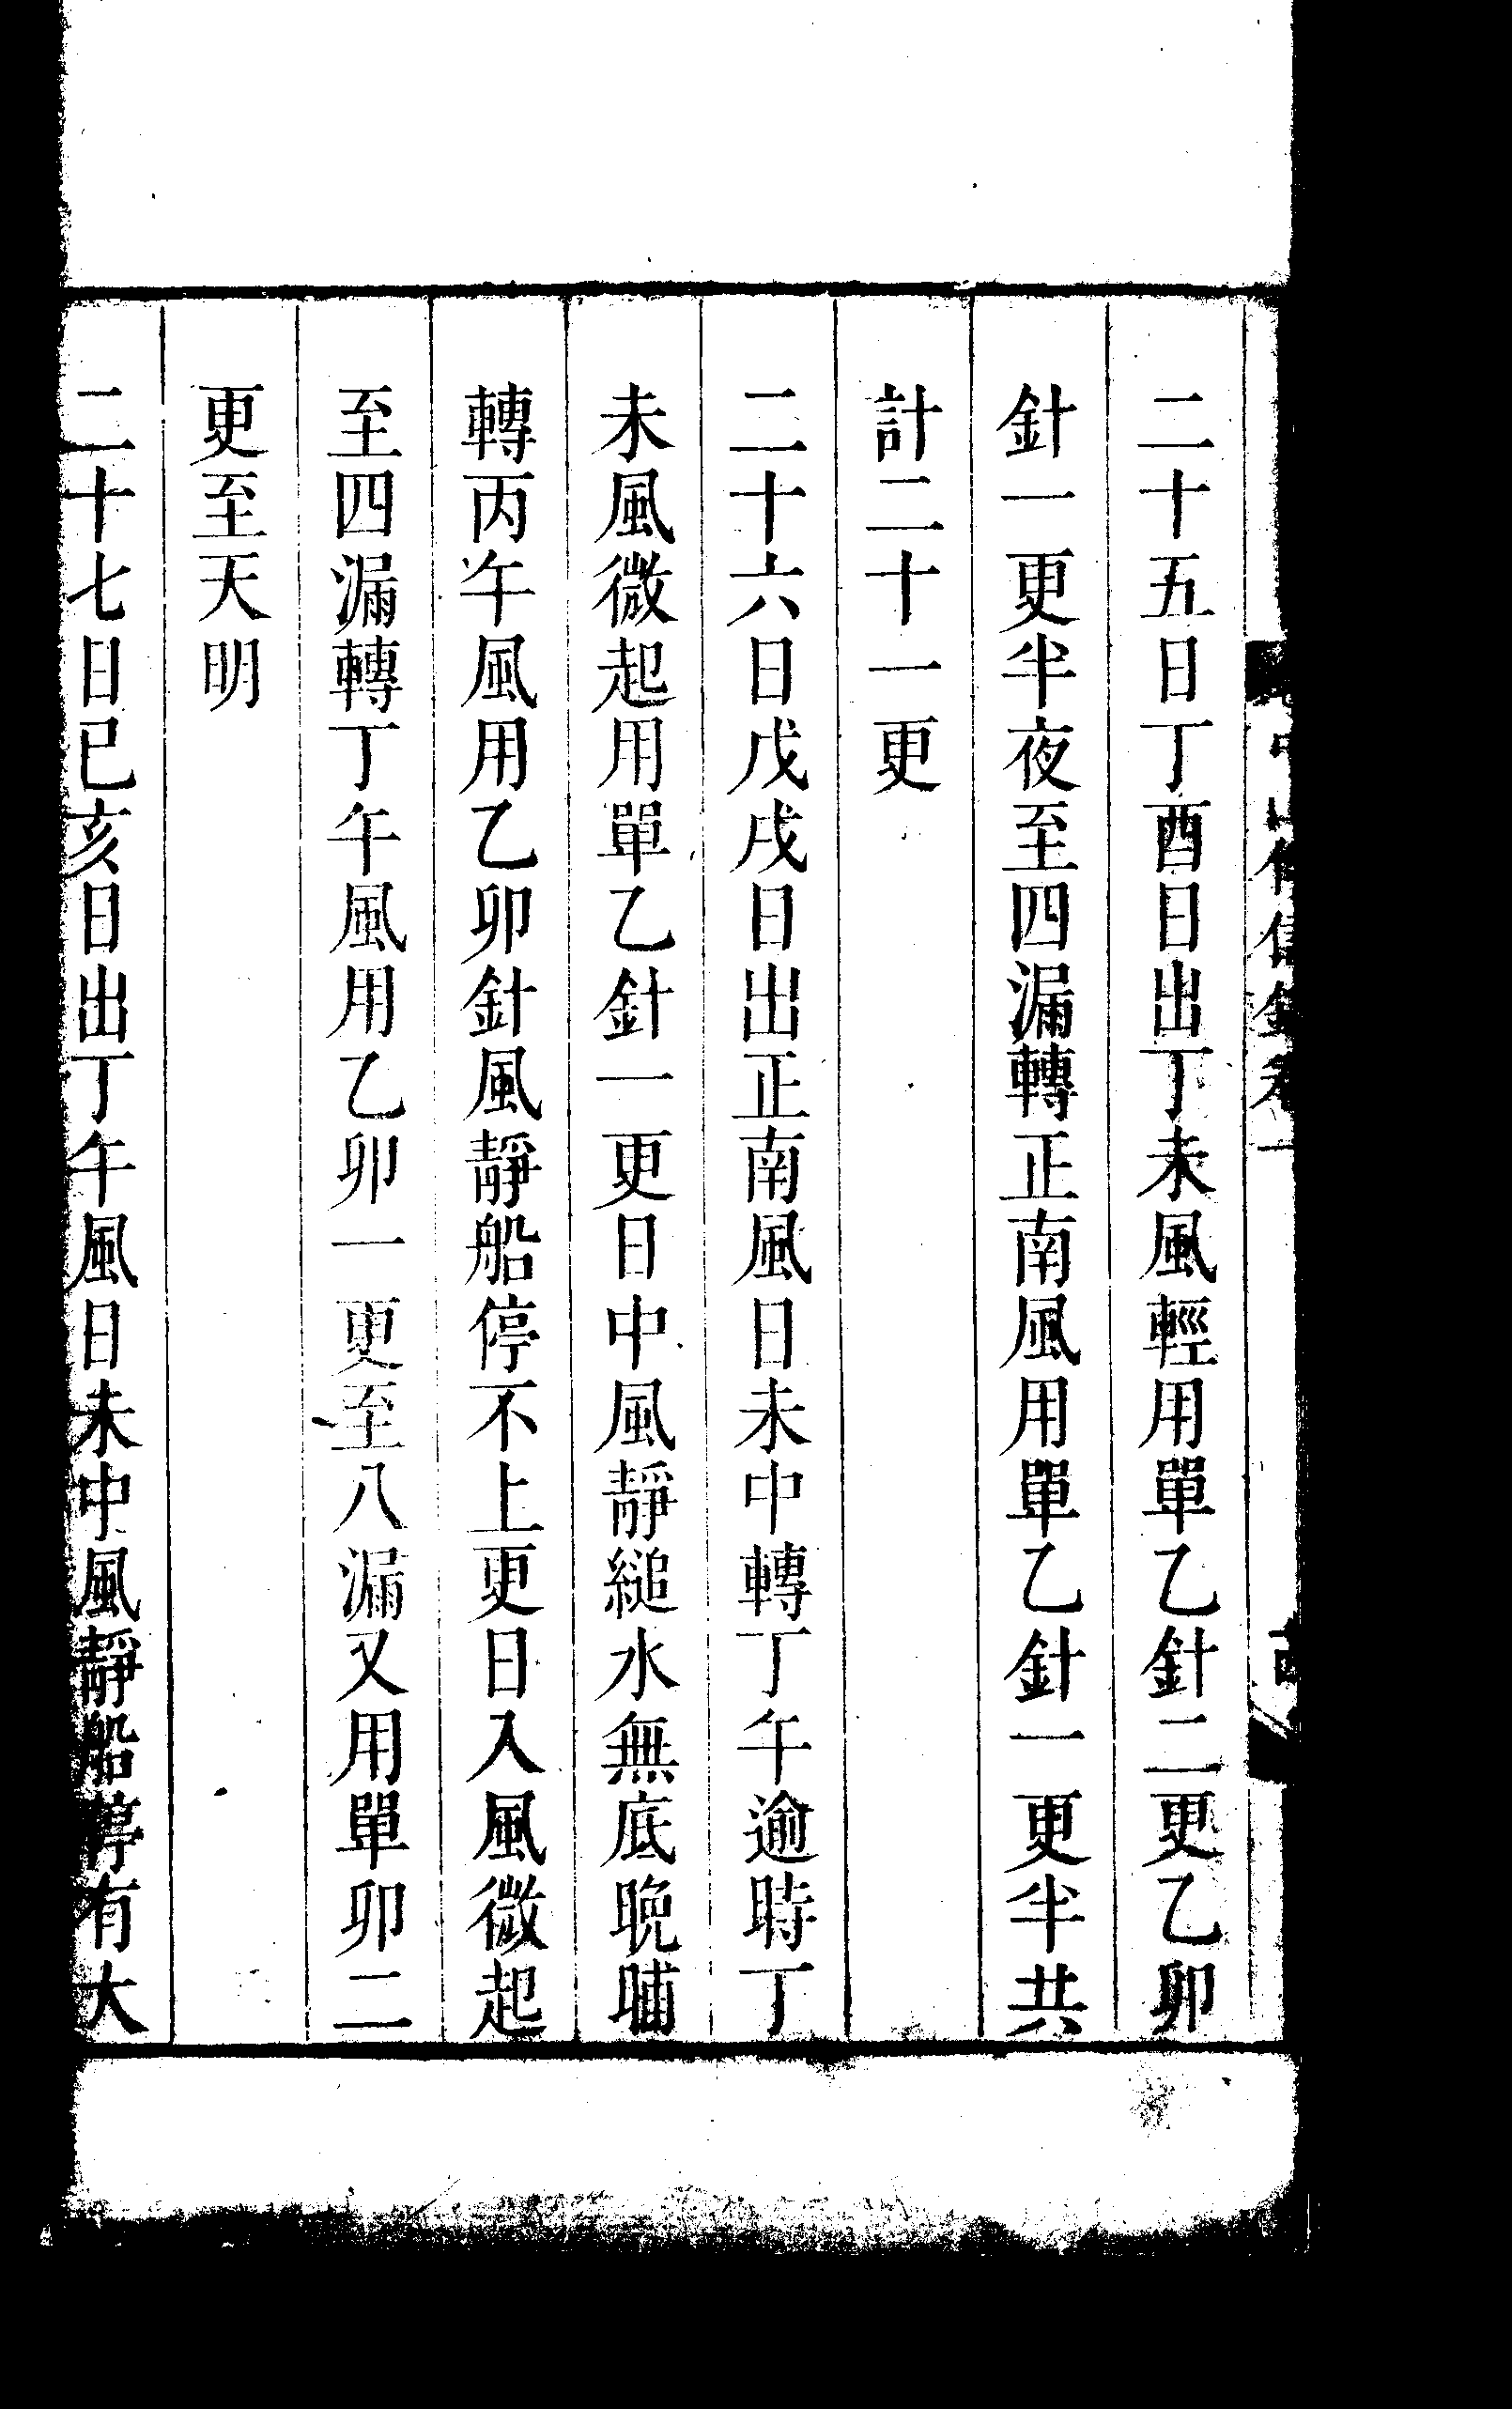 中山傳信錄卷一
二十五日丁酉日出丁未風輕用單乙針二更乙卯
針一更半夜至四漏轉正南風用單乙針一更半共
計二十一更
二十六日戊戌日出正南風日未中轉丁午逾時丁
未風微起用單乙針一更日中風靜縋水無底晩晡
轉丙午風用乙卯針風靜船停不上更日入風微起
至四漏轉丁午風用乙卯一更至八漏又用單卯二
更至天明
二十七日已亥日出丁午風日未中風靜船停有大